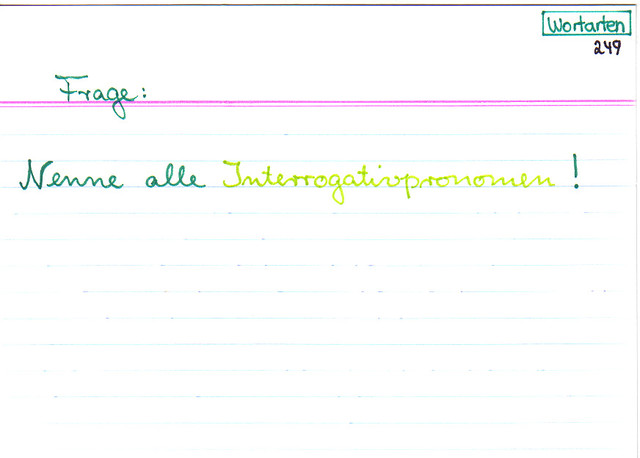 Wortarten
249
Frage:
Nenne alle Interrogativpronomen!